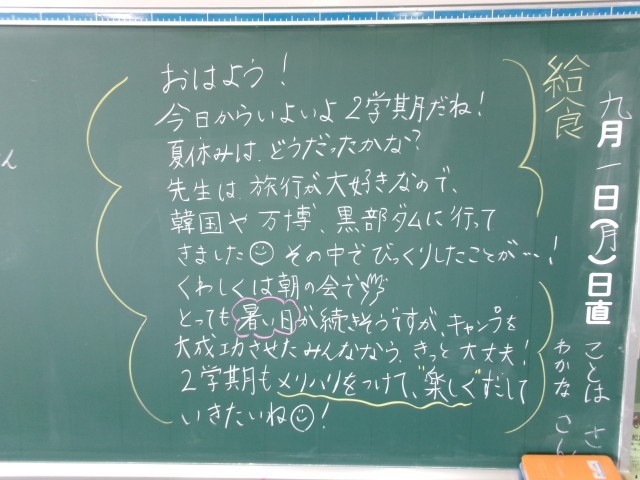 九月一日(月)日直
ことは さ
わかな さん
給食
おはよう!
今日からいよいよ2学期だね!
夏休みは、どうだったかな?
先生は、旅行が大好きなので、
韓国や万博、黒部ダムに行って
きました その中でびっくりしたことが…!
くわしくは朝の会で
とっても暑い日が続きそうですが、キャンプを
大成功させたみんななら、きっと大丈夫!
2学期もメリハリをつけて、"楽しく"すごして
いきたいね!
ん